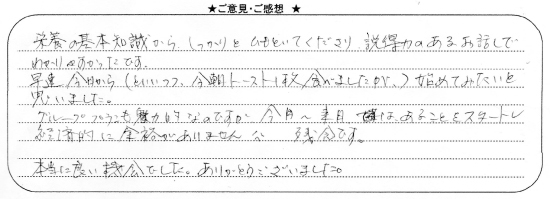 ★ご意見・ご感想 ★
栄養の基本知識から、しっかりと ひもといてくださり、説得力のあるお話しで
わかりやすかったです。
早速、今日から(といいつつ、今朝トースト1枚食べましたが、)始めてみたいと
思いました。
グループプランも魅力的なのですが、今月〜来月は、あることをスタートし
経済的に余裕がありません 残念です。
本当に良い機会でした。ありがとうございました。